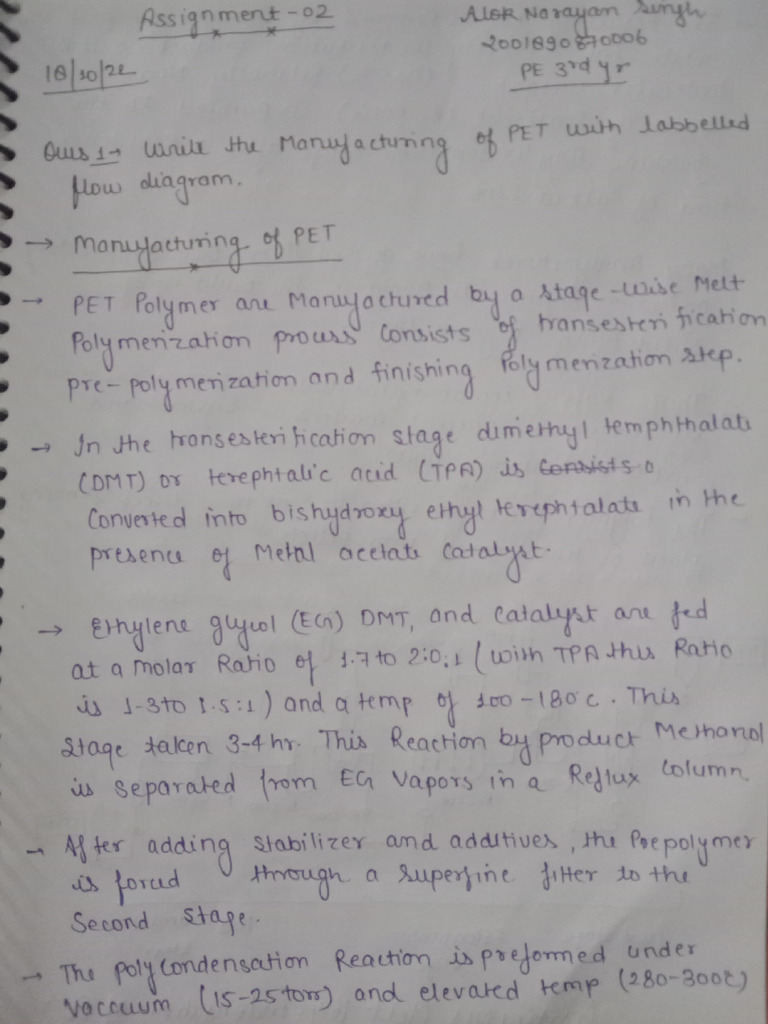 Assignment-02
Alok Narayan Singh
2001890870006
PE 3rd yr
18/10/22
Ques 1→ Write the Manufacturing of PET with labbelled
flow diagram.
→ Manufacturing of PET
→ PET Polymer are Manufactured by a stage-wise Melt
Polymerization process Consists of transesterification
pre-polymerization and finishing Polymerization step.
→ In the transesterification stage dimethyl temphthalate
(DMT) or terephtalic acid (TPA) is Consists o
Converted into bishydroxy ethyl terephtalate in the
presence of Metal acetate Catalyst.
→ Ethylene glycol (EG) DMT, and Catalyst are fed
at a molar Ratio of 1.7 to 2:0:1 (with TPA this Ratio
is 1-3 to 1.5:1) and a temp of 100-180°c. This
stage taken 3-4 hr. This Reaction by product Methanol
is separated from EG Vapors in a Reflux Column
→ After adding stabilizer and additives, the Prepolymer
is forced through a superfine filter to the
Second stage.
→ The polycondensation Reaction is preformed under
vaccuum (15-25 torr) and elevated temp (280-300℃)